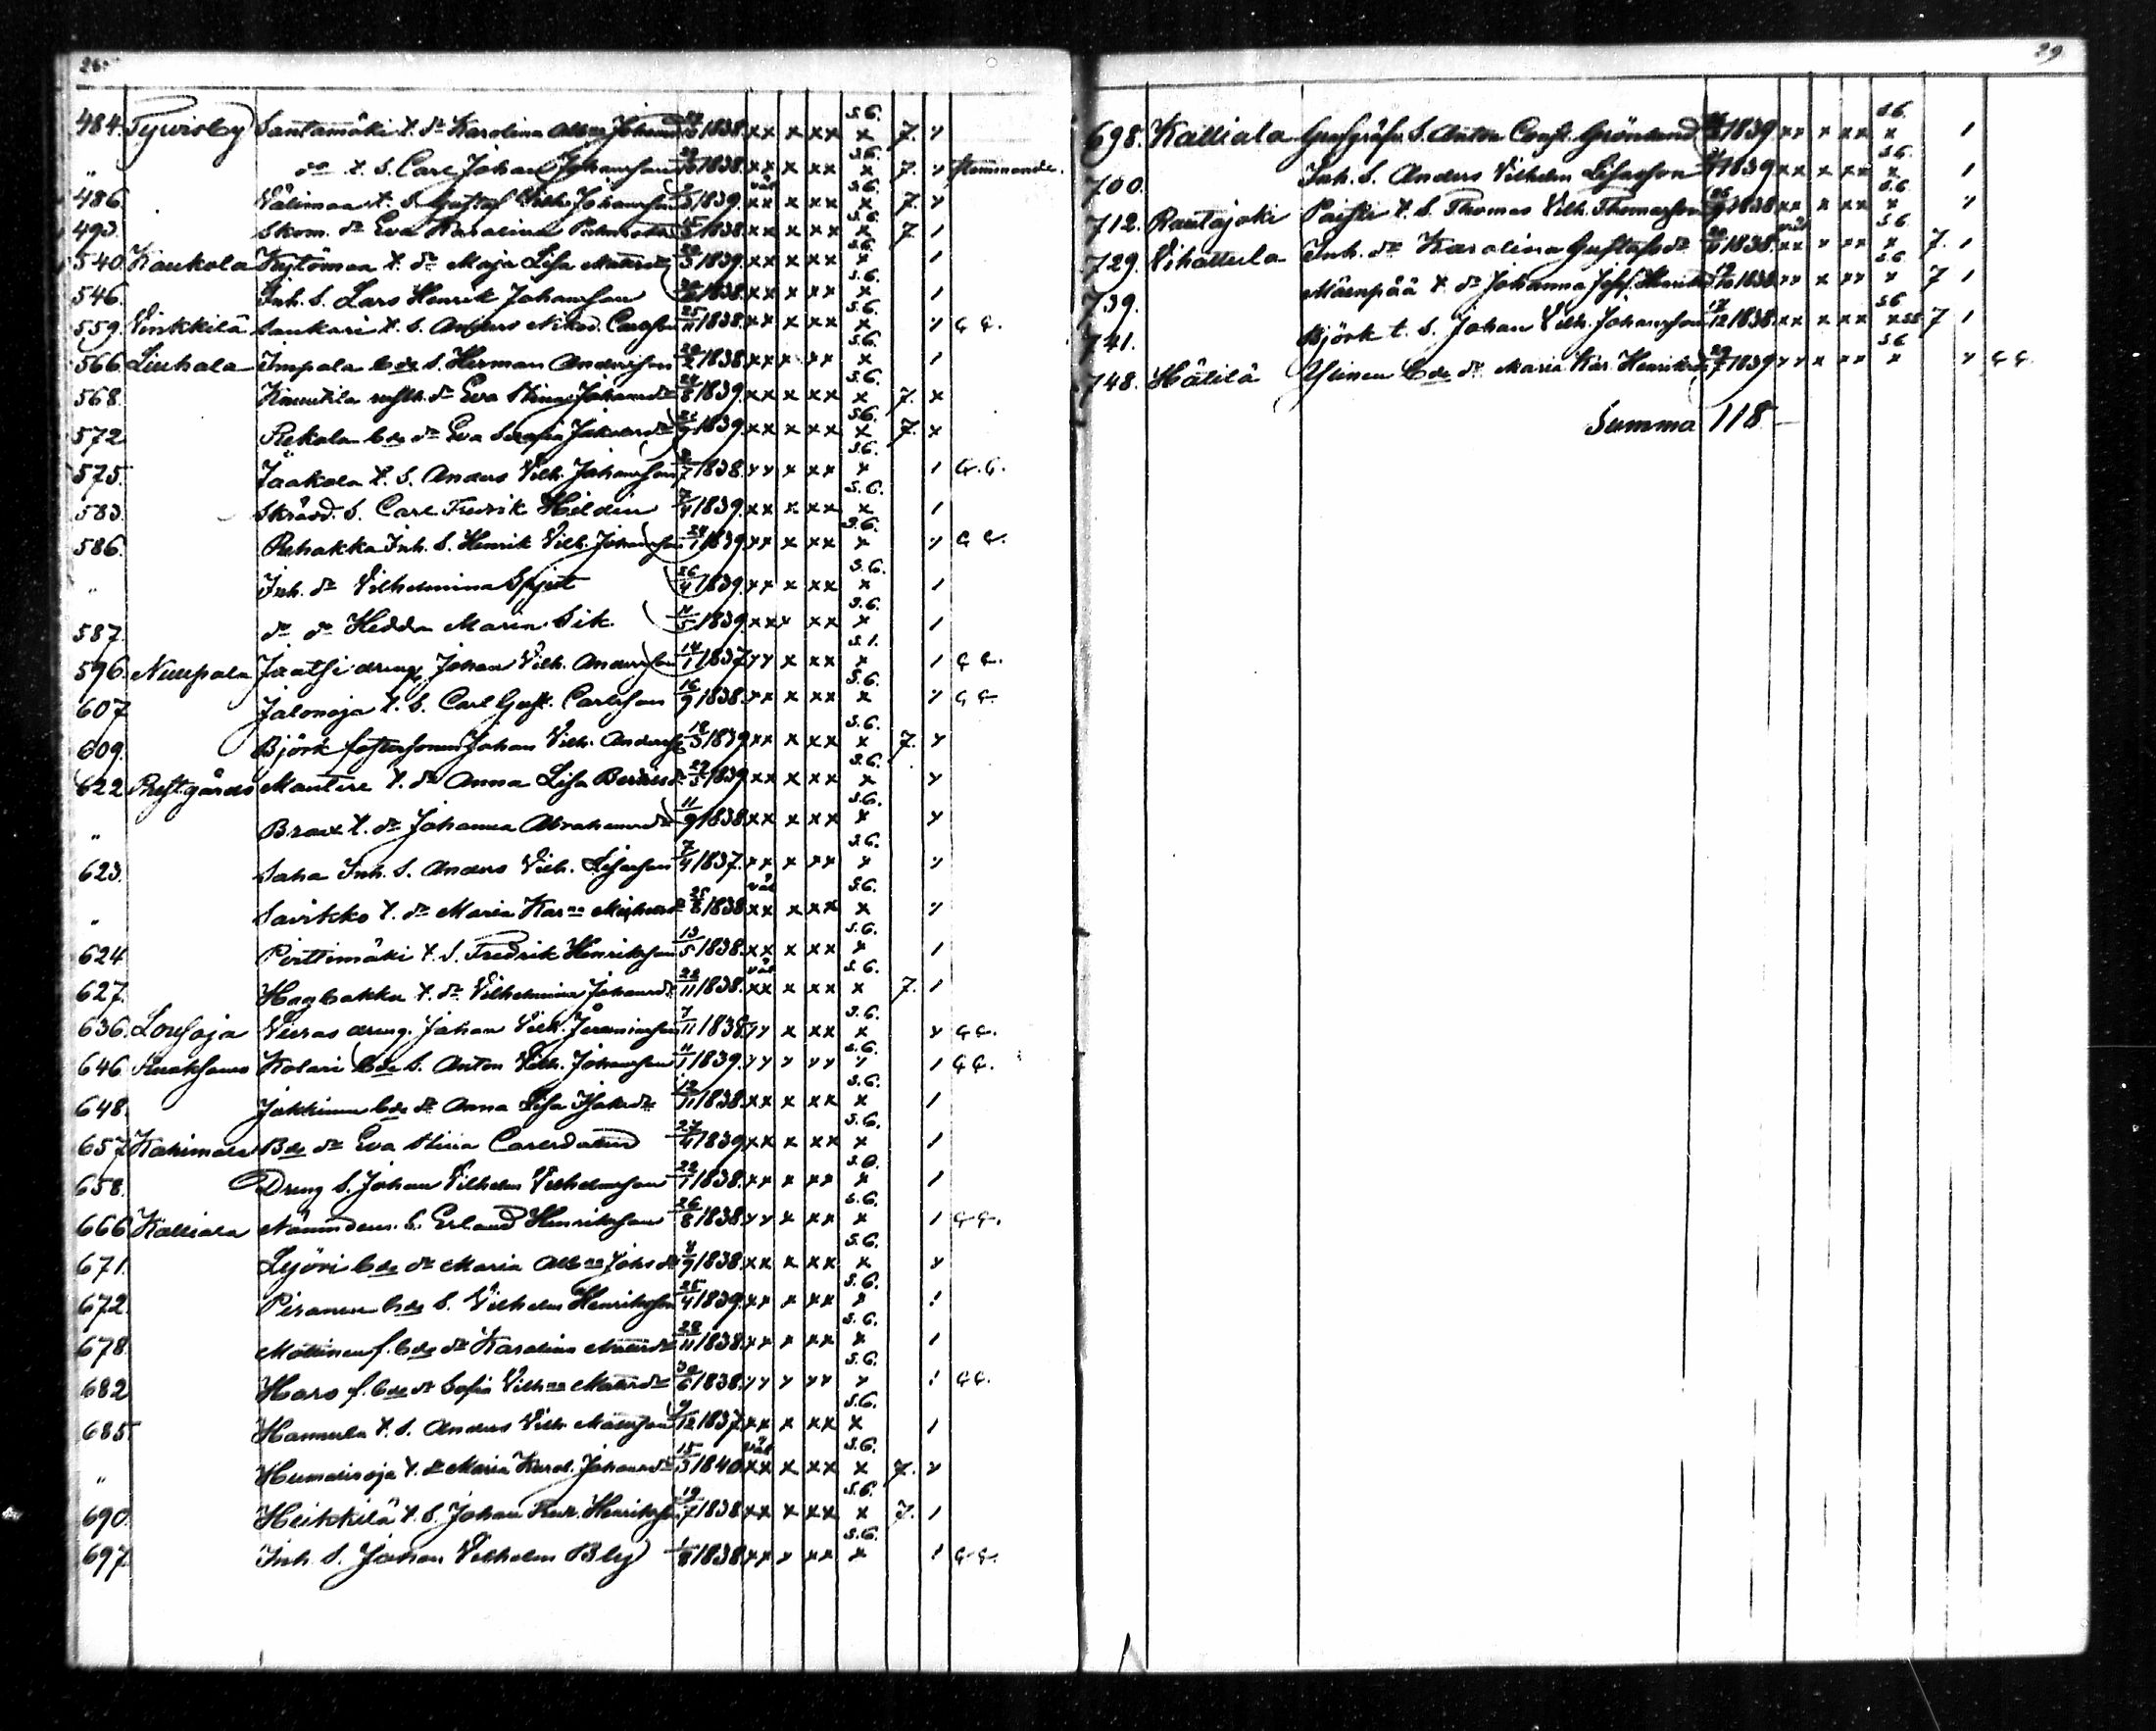 28.
484. Tyrvisby Santamäki t. dr Karolina Alb:na Johansd 1838. xx x xx s.6. x 7. x
" do t. S. Carl Johan Johansson 1838. xx x xx s.6. x 7. x stammande.
486. Välimaa t. S. Gustaf Vilh. Johansson 1839. väl xx x xx s.6. x 7. x
493. Skom. dr Eva Karolina 1838. xx x xx s.6. x 7. 1
540. Kaukola t. dr Maja Lisa 1839. xx x xx s.6. x 1
546. Inh. S. Lars Henrik Johansson 1838. xx x xx s.6. x 1
559. Vinkkilä Saukari t. S. Anders Nikod. Carlsson 25/11 1838. xx x xx s.6. x x
566. Liuhala Impola bde S. Herman Andersson 1838. xx x xx s.6. x 1
568. dr Eva Stina Johansdr 24/8 1839. xx x xx s.6. x 7. x
572 Rekola bde dr Eva Serafia 1839. xx x xx s.6. x 7. x
575. Jaakola t. S. Anders Vilh. Johansson 1838. xx x xx s.6. x 1
583. Skrädd. S. Carl Fredrik Heldin 7/4 1839. xx x xx s.6. x 1
586. Rehakka Inh. S. Henrik Vilh. Johansson 24/1 1839. xx x xx s.6. x x
" Inh. dr Vilhelmina Spjut 26/4 1839. xx x xx s.6. x 1
587. dr dr Hedda Maria Sik. 11/5 1839. xx x xx s.6. x 1
596. Nuupala Jaatsi dreng Johan Vilh. Andersson 14/1 1837. xx x xx s.1. x 1
607 Jalonoja t. S. Carl Gust. Carlsson 16/9 1838. xx x xx s.6. x x
609. Björk fostersonen Johan Vilh. Anderss 12/3 1839 xx x xx s.6. x 7. x
622 Prestgårds Mantere t. dr Anna Lisa 29/5 1839 xx x xx s.6. x x
" Brax t. dr Johanna Abrahamsdr 11/9 1838. xx x xx s.6. x x
623. Saha Inh. S. Anders Vilh. Lisasson 7/4 1837. xx x xx s.6. x x
" Savikko t. dr Maria Kar:na 25/8 1838 väl xx x xx s.6. x x
624. Pirttimäki t. S. Fredrik Henriksson 13/5 1838. xx x xx s.6. x 1
627. Hagbakka t. dr Vilhelmina Johansdr 22/11 1838. väl xx x xx s.6. x 7. 1
636. Lousoja Vieras dreng. Johan Vilh. Jeremiasson 7/11 1838. xx x xx s.6. x x
646 Kolari bde S. Anton Vilh. Johansson 11/1 1839. xx x xx s.6. x 1
648. Jakkinen bde dr Anna Lisa Isaksdr 12/11 1838. xx x xx s.6. x 1
657 Kahimala Bde dr Eva Stina Carlsdotter 27/4 1839 xx x xx s.6. x 1
658. Dreng S. Johan Vilhelm Vilhelmsson 22/1 1838. xx x xx s.6. x 1
666 Kalliala Nämndem. S. Erland Henriksson 26/8 1838. xx x xx s.6. x 1
671. Lyöri bde dr Maria Alb:na Johsdr 1838. xx x xx s.6. x x
672. Piranen bde S. Vilhelm Henriksson 25/4 1839. xx x xx s.6. x 1
678. Mottinen f. bde dr Karolina Mattsdr 28/11 1838. xx x xx s.6. x 1
682 Haro f. bde dr Sofia Vilh:na Mattsdr 30/6 1838. xx x xx s.6. x 1
685 Hannula t. S. Anders Vilh. Mattsson 9/12 1837. xx x xx s.6. x 1
" t. dr Maria Karol. Johansdr 15/3 1840 väl xx x xx s.6. x 7. x
690. Heikkilä t. S. Johan Fredr. Henriksson 19/7 1838. xx x xx s.6. x 7. 1
697. Inh. S. Johan Vilhelm Bly 1/8 1838. xx x xx s.6. x 1
29
698. Kalliala S. Anton Const. Grönlund 1839. xx x xx s.6. x 1
700. Inh. S. Anders Vilhelm Lisasson 1839 xx x xx s.6. x 1
712. Rautajoki t. S. Thomas Vilh. Thomasson 1838 xx x xx s.6. x x
729. Vihattula Inh. dr Karolina Gustafsdr 1838. väl xx x xx s.6. x 7. 1
739. Mäenpää t. dr Johanna Josef. 1838 xx x xx s.6. x 7 1
741. Björk t. S. Johan Vilh. Johansson 17/12 1838. xx x xx s.6. x 7 1
748. Hätilä Ylinen bde dr Maria Kar. Henriksdr 29/7 1839 xx x xx s.6. x x
Summa 118